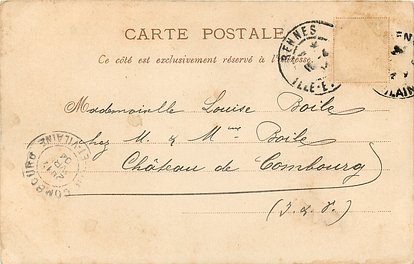 CARTE POSTALE
Ce côté est exclusivement réservé à l'adresse
RENNES
ILLE-E
EN
ILAIN
Mademoiselle Louise Boile
chez M. & Mme Boile
Château de Combourg
(I. & V.)
COMBOURG
VILAINE